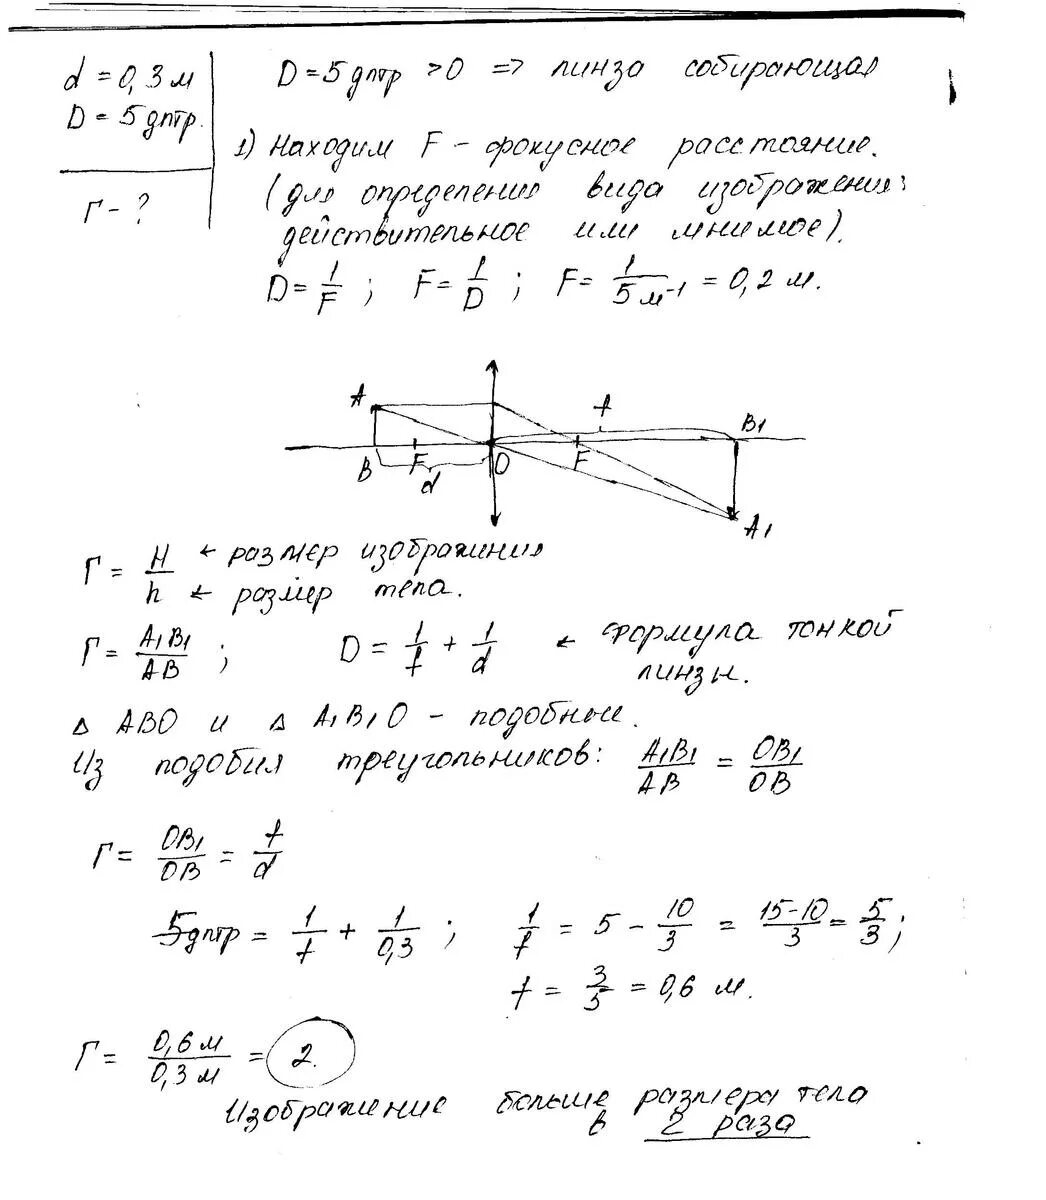 d = 0,3 м
D = 5 дптр.
Г - ?
D = 5 дптр > 0 => линза собирающая
1) Находим F - фокусное расстояние.
(для определения вида изображения:
действительное или мнимое).
D = 1/F ; F = 1/D ; F = 1/5 м⁻¹ = 0,2 м.
A
f
B1
B
F
d
O
F
A1
Г = H/h ← размер изображения
← размер тела.
Г = A1B1/AB ; D = 1/f + 1/d ← формула тонкой
линзы.
Δ ABO и Δ A1B1O - подобные.
Из подобия треугольников: A1B1/AB = OB1/OB
Г = OB1/OB = f/d
5 дптр = 1/f + 1/0,3 ; 1/f = 5 - 10/3 = 15-10/3 = 5/3 ;
f = 3/5 = 0,6 м.
Г = 0,6 м/0,3 м = 2.
Изображение больше размера тела
в 2 раза